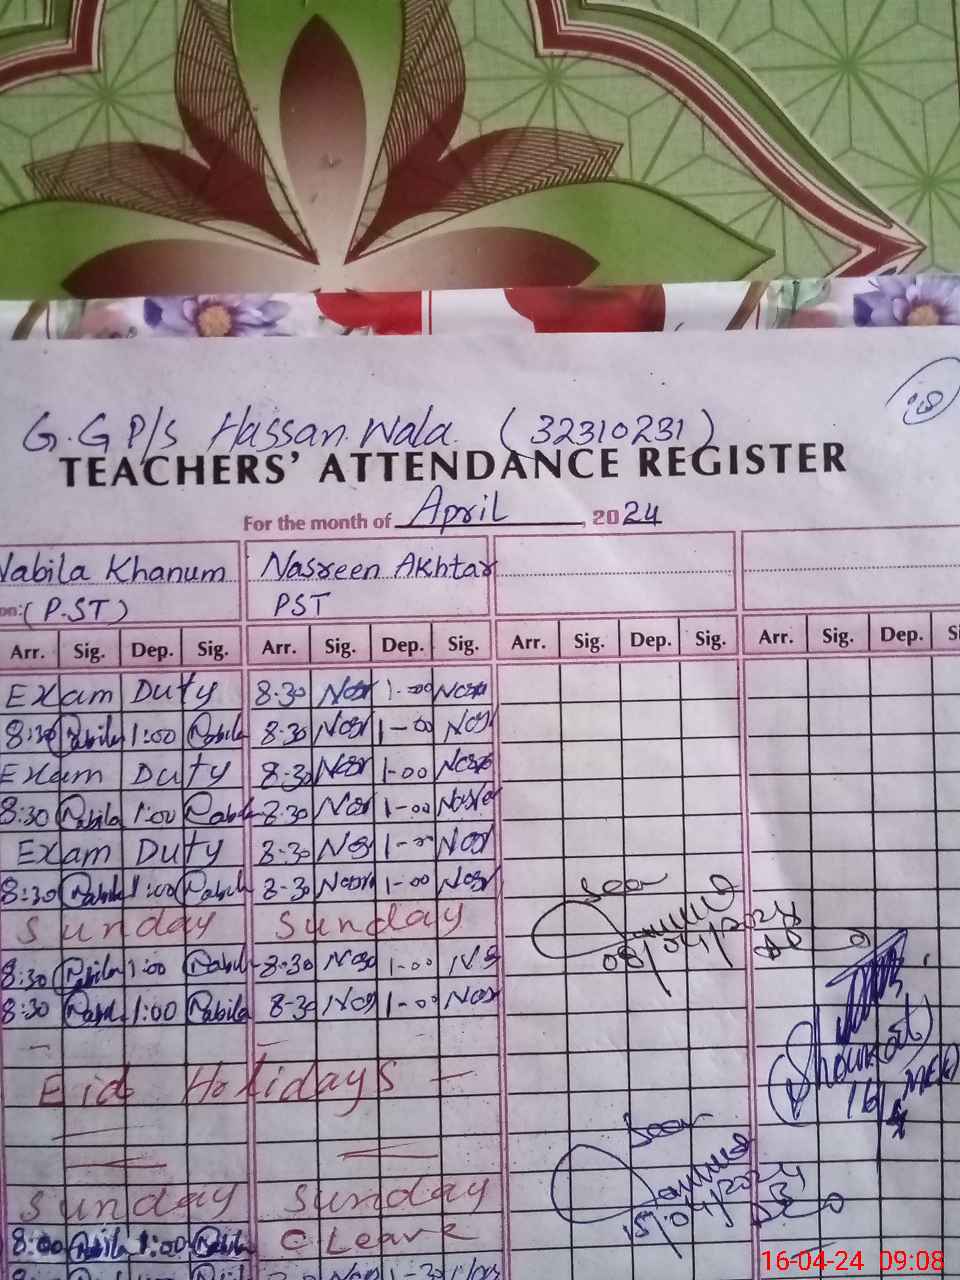 G.G P/S Hassan Wala (32310231)
TEACHERS' ATTENDANCE REGISTER
For the month of April, 2024
Nabila Khanum Nasreen Akhtar
on: (P.ST) PST
Arr. Sig. Dep. Sig. Arr. Sig. Dep. Sig. Arr. Sig. Dep. Sig. Arr. Sig. Dep. Si
Exam Duty 8-30 1-00
8:30 Nabila 1:00 Nabila 8-30 1-00
Exam Duty 8-30 1-00
8:30 Nabila 1:00 Nabila 8-30 1-00
Exam Duty 8-30 1-00
8:30 Nabila 1:00 Nabila 8-30 1-00
Seen
Sunday Sunday
08/04/2024
8:30 Nabila 1:00 Nabila 8-30 1-00
8:30 1:00 Nabila 8-30 1-00
(Shoukat)
Eid Holidays
MEA
16/4
Seen
Sunday Sunday
15/04/2024
8:00 Nabila 1:00 Nabila C Leave
1-30
16-04-24 09:08